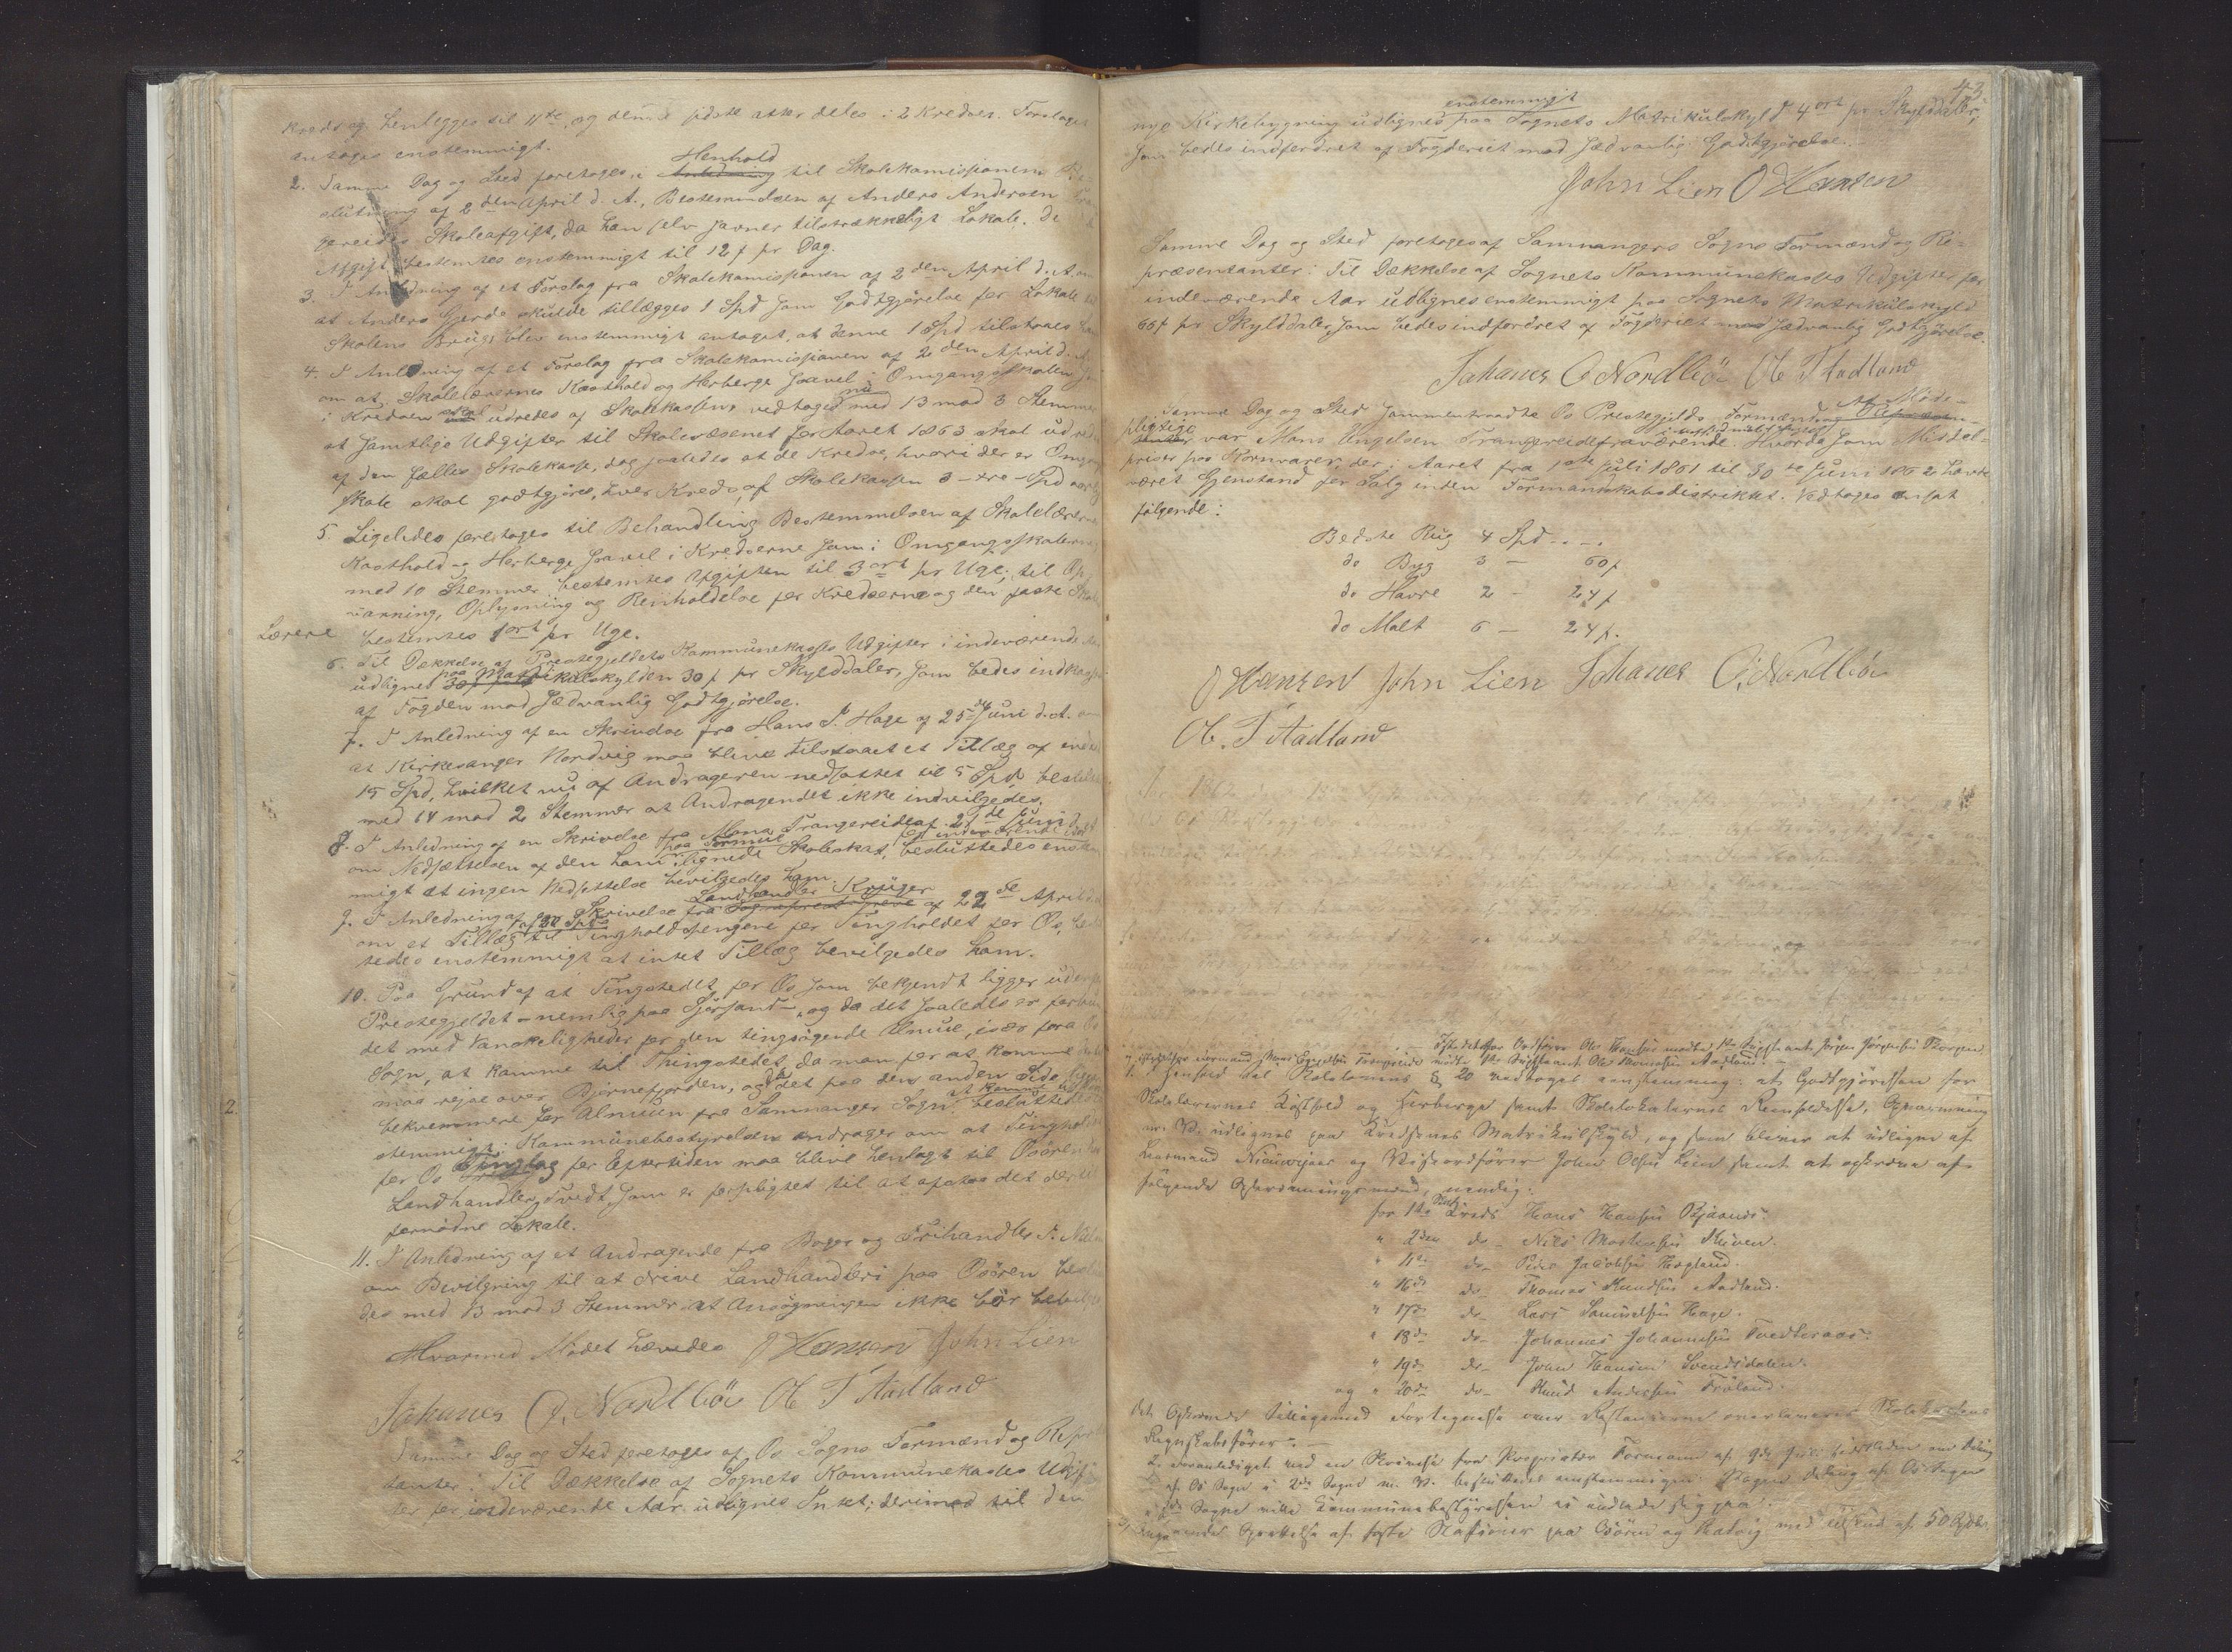 Kreds og henlegges til 11te, og denne sidste atter deles i 2 Kredser. Forslaget
antoges enstemmigt.
2. Samme Dag og Sted foretoges, i Henhold til Skolekomissionens Be-
slutning af 2den April d. A., Bestemmelsen af Anders Andersen
gereides Skoleafgift, da han selv savner tilstrækkeligt Lokale. De
Afgift bestemtes enstemmigt til 12 s pr Dag.
3. I Anledning af et Forslag fra Skolekomissionen af 2den April d. A. om
at Anders Gjerde skulde tillægges 1 Spd som Godtgjørelse for Lokale til
Skolens Brug, blev enstemmigt antaget, at denne 1 Spd tilstaaes ham
4. I Anledning af et Forslag fra Skolekomissionen af 2den April d. A.
om at Skolelærernes Kosthold og Herberge saavel i Omgangsskolen som
i Kredsen skal udredes af Skolekassen, vedtoges nu med 13 mod 3 Stemmer
at samtlige Udgifter til Skolevæsenet for Aaret 1863 skal udredes
af den fælles Skolekasse, dog saaledes at de Kredse, hvori der er Omgangs
skole skal godtgjøres, hver Kreds, af Skolekassen 3 - tre - Spd aarlig
5. Ligeledes foretoges til Behandling Bestemmelsen af Skolelærernes
Kosthold og Herberge saavel i Kredserne som i Omgangsskolerne,
med 10 Stemmer bestemtes Afgiften til 3 ort pr Uge; til Op-
varmning, Oplysning og Reenholdelse for Kredserne og den faste Skole
Lærere bestemtes 1 ort pr Uge.
6. Til Dækkelse af Prestegjeldets Kommunekasses Udgifter i indeværende Aar
udlignes paa Matrikulskylden 30 s pr Skylddaler, som bedes indkasseret
af Fogden mod sædvanlig Godtgjørelse.
7. I Anledning af en Skrivelse fra Hans J. Hage af 25de Juni d. A. om
at Kirkesanger Nordvig maa blive tilstaaet et Tillæg af indtil
15 Spd, hvilket nu af Andrageren nedsattes til 5 Spd besluttedes
med 14 mod 2 Stemmer at Andragendet ikke indvilgedes.
8. I Anledning af en Skrivelse fra Mons Trangereide af 21de Juni d. A.
om Nedsættelsen af den ham paa Formue ilignede Skoleskat, for indeværende Aar besluttedes enstem
migt at ingen Nedsettelse bevilgedes ham.
9. I Anledning af en Skrivelse fra Landhandler Krüger af 22de April d. A.
om et Tillæg af 30 Spd til Tingholdspengene for Tingholdet for Os, be-
tedes enstemmigt at intet Tillæg bevilgedes ham.
10. Paa Grund af at Tingstedet for Os som bekjendt ligger udenfor
Prestegjeldet - nemlig paa Gjørsand - og da det saaledes er forbun
det med Vanskeligheder for den tingsøgende Almue, især fra Os
Sogn, at komme til Thingstedet, da man for at komme did
maa reise over Bjørnefjorden, og da det paa den anden Side ligger
bekvemmere for Almuen fra Samnanger Sogn at komme til Osøren besluttedes en
stemmigt: Kommunebestyrelsen andrager om at Tingholdet
for Os Tinglag for Eftertiden maa blive henlagt til Osøren hos
Landhandler Tvedt som er forpligtet til at afstaa det dertil
fornødne Lokale.
11. I Anledning af et Andragende fra Boger og Frihandler J. Niel
om Bevilgning til at drive Landhandleri paa Osøren beslutte-
des med 13 mod 3 Stemmer at Ansøgningen ikke bør bevilges
Hvormed Mødet hævedes O Hansen John Lien
Johanes O. Nordbö Ob T Aadland
Samme Dag og Sted foretoges af Os Sogns Formænd og Repræsen
tanter: Til Dækkelse af Sognets Kommunekasses Udgif
ter for indeværende Aar udlignes Intet; derimod til den
43
nye Kirkebygning udlignes enstemmigt paa Sognets Matrikulskyld 4 ort pr Skylddaler,
som bedes indfordret af Fogderiet mod sædvanlig Godtgjörelse.
John Lien O Hansen
Samme Dag og Sted foretoges af Samnangers Sogns Formænd og Re-
præsentanter: Til Dækkelse af Sognets Kommunekasses Udgifter for
indeværende Aar udlignes enstemmigt paa Sognets Matrikulskyld
66 s pr Skylddaler, som bedes indfordret af Fogderiet mod sædvanlig Godtgjörelse.
Johanes O Nordbö Ob T Aadland
Samme Dag og Sted sammentraadte Os Prestegjelds Formænd. Af Möde-
pligtige var Mons Engelsen Trangereide fraværende. Hvorda som Middel-
priser paa Kornvarer, der i Aaret fra 1ste Juli 1861 til 30te Juni 1862 havde
været Gjenstand for Salg inden Formandskabsdistriktet. Vedtoges ansat
følgende:
Bedste Rug 4 Spd - . - .
do Byg 3 — 60 s
do Havre 2 - 24 s
do Malt 6 — 24 s.
O Hansen John Lien Johanes O. Nordbö
Ob. T Aadland
Istedetfor Ordfører Ole Hansen mødte 1ste Suppleant Jørgen Jørgensen Borgen
I Henhold til Skolelovens § 20 vedtoges eenstemmig: at Godtgjørelsen for
Skolelærernes Kosthold og Herberge samt Skolelokalernes Reenholdelse, Opvarmning
m. V. udlignes paa Kredsenes Matrikulskyld, og som bliver at udligne af
Lensmand Nieuwejaar og Viceordfører John Olsen Lien samt at opkræve af
følgende Opkrævningsmænd, nemlig:
for 1ste Skole Kreds Hans Hansen Bjaanes.
" 2den do - Niels Mortensen Skeien.
" 11te do - Peder Jacobsen Hegland.
" 16de do - Thomas Knudsen Aadland.
" 17de do - Lars Samuelsen Hage.
" 18de do - Johannes Johannesen Tvedteraas.
" 19de do - John Hansen Svendsdalen.
og " 20de do - Knud Andersen Frøland.
det Opkrævede tilligemed Fortegnelse over Restancerne overleveres Skolekassens
Regnskabsfører. -
2. foranlediget ved en Skrivelse fra Proprietær Formann af 9de Juli sidstleden om Deling
af Os Sogn i 2de Sogne m. V. besluttedes eenstemmigen:
Sogne ville Kommunebestyrelsen ei indlade sig paa.
3, Oprettelse af faste Stationer paa Osøren og Hatvig med Tilskud af 50 Spdlr.